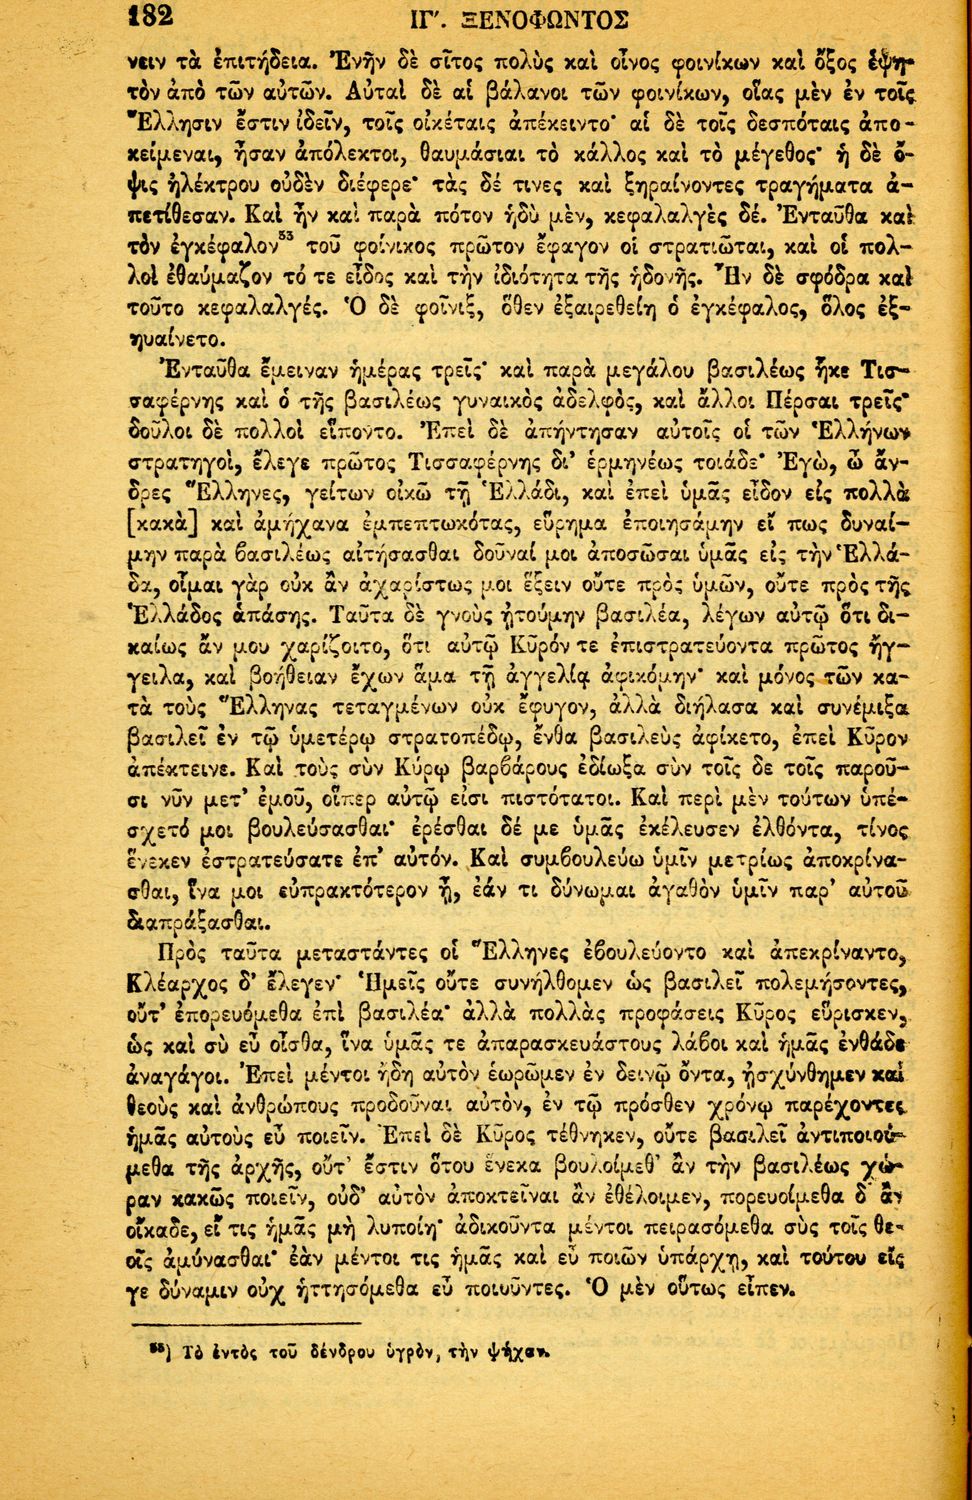 182
ΙΓʹ. ΞΕΝΟΦΩΝΤΟΣ
νειν τὰ ἐπιτήδεια. Ἐνῆν δὲ σῖτος πολὺς καὶ οἶνος φοινίκων καὶ ὄξος ἑψη-
τὸν ἀπὸ τῶν αὐτῶν. Αὐταὶ δὲ αἱ βάλανοι τῶν φοινίκων, οἵας μὲν ἐν τοῖς
Ἕλλησιν ἔστιν ἰδεῖν, τοῖς οἰκέταις ἀπέκειντο· αἱ δὲ τοῖς δεσπόταις ἀπο-
κείμεναι, ἦσαν ἀπόλεκτοι, θαυμάσιαι τὸ κάλλος καὶ τὸ μέγεθος· ἡ δὲ ὄ-
ψις ἠλέκτρου οὐδὲν διέφερε· τὰς δέ τινες καὶ ξηραίνοντες τραγήματα ἀ-
πετίθεσαν. Καὶ ἦν καὶ παρὰ πότον ἡδὺ μὲν, κεφαλαλγὲς δέ. Ἐνταῦθα καὶ
τὸν ἐγκέφαλον⁵³ τοῦ φοίνικος πρῶτον ἔφαγον οἱ στρατιῶται, καὶ οἱ πολ-
λοὶ ἐθαύμαζον τό τε εἶδος καὶ τὴν ἰδιότητα τῆς ἡδονῆς. Ἦν δὲ σφόδρα καὶ
τοῦτο κεφαλαλγές. Ὁ δὲ φοῖνιξ, ὅθεν ἐξαιρεθείη ὁ ἐγκέφαλος, ὅλος ἐξ-
ηυαίνετο.
Ἐνταῦθα ἔμειναν ἡμέρας τρεῖς· καὶ παρὰ μεγάλου βασιλέως ἧκε Τισ-
σαφέρνης καὶ ὁ τῆς βασιλέως γυναικὸς ἀδελφὸς, καὶ ἄλλοι Πέρσαι τρεῖς·
δοῦλοι δὲ πολλοὶ εἵποντο. Ἐπεὶ δὲ ἀπήντησαν αὐτοῖς οἱ τῶν Ἑλλήνων
στρατηγοὶ, ἔλεγε πρῶτος Τισσαφέρνης δι’ ἑρμηνέως τοιάδε· Ἐγὼ, ὦ ἄν-
δρες Ἕλληνες, γείτων οἰκῶ τῇ Ἑλλάδι, καὶ ἐπεὶ ὑμᾶς εἶδον εἰς πολλὰ
[κακὰ] καὶ ἀμήχανα ἐμπεπτωκότας, εὕρημα ἐποιησάμην εἴ πως δυναί-
μην παρὰ βασιλέως αἰτήσασθαι δοῦναί μοι ἀποσῶσαι ὑμᾶς εἰς τὴν Ἑλλά-
δα, οἶμαι γὰρ οὐκ ἂν ἀχαρίστως μοι ἕξειν οὔτε πρὸς ὑμῶν, οὔτε πρὸς τῆς
Ἑλλάδος ἁπάσης. Ταῦτα δὲ γνοὺς ᾐτούμην βασιλέα, λέγων αὐτῷ ὅτι δι-
καίως ἄν μου χαρίζοιτο, ὅτι αὐτῷ Κῦρόν τε ἐπιστρατεύοντα πρῶτος ἤγ-
γειλα, καὶ βοήθειαν ἔχων ἅμα τῇ ἀγγελίᾳ ἀφικόμην· καὶ μόνος τῶν κα-
τὰ τοὺς Ἕλληνας τεταγμένων οὐκ ἔφυγον, ἀλλὰ διήλασα καὶ συνέμιξα
βασιλεῖ ἐν τῷ ὑμετέρῳ στρατοπέδῳ, ἔνθα βασιλεὺς ἀφίκετο, ἐπεὶ Κῦρον
ἀπέκτεινε. Καὶ τοὺς σὺν Κύρῳ βαρβάρους ἐδίωξα σὺν τοῖς δε τοῖς παροῦ-
σι νῦν μετ’ ἐμοῦ, οἵπερ αὐτῷ εἰσι πιστότατοι. Καὶ περὶ μὲν τούτων ὑπέ-
σχετό μοι βουλεύσασθαι· ἐρέσθαι δέ με ὑμᾶς ἐκέλευσεν ἐλθόντα, τίνος
ἕνεκεν ἐστρατεύσατε ἐπ’ αὐτόν. Καὶ συμβουλεύω ὑμῖν μετρίως ἀποκρίνα-
σθαι, ἵνα μοι εὐπρακτότερον ᾖ, ἐάν τι δύνωμαι ἀγαθὸν ὑμῖν παρ’ αὐτοῦ
διαπράξασθαι.
Πρὸς ταῦτα μεταστάντες οἱ Ἕλληνες ἐβουλεύοντο καὶ ἀπεκρίναντο,
Κλέαρχος δ’ ἔλεγεν· Ἡμεῖς οὔτε συνήλθομεν ὡς βασιλεῖ πολεμήσοντες,
οὔτ’ ἐπορευόμεθα ἐπὶ βασιλέα· ἀλλὰ πολλὰς προφάσεις Κῦρος εὕρισκεν,
ὡς καὶ σὺ εὖ οἶσθα, ἵνα ὑμᾶς τε ἀπαρασκευάστους λάβοι καὶ ἡμᾶς ἐνθάδε
ἀναγάγοι. Ἐπεὶ μέντοι ἤδη αὐτὸν ἑωρῶμεν ἐν δεινῷ ὄντα, ᾐσχύνθημεν καὶ
θεοὺς καὶ ἀνθρώπους προδοῦναι αὐτὸν, ἐν τῷ πρόσθεν χρόνῳ παρέχοντες
ἡμᾶς αὐτοὺς εὖ ποιεῖν. Ἐπεὶ δὲ Κῦρος τέθνηκεν, οὔτε βασιλεῖ ἀντιποιού-
μεθα τῆς ἀρχῆς, οὔτ’ ἔστιν ὅτου ἕνεκα βουλοίμεθ’ ἂν τὴν βασιλέως χώ-
ραν κακῶς ποιεῖν, οὐδ’ αὐτὸν ἀποκτεῖναι ἂν ἐθέλοιμεν, πορευοίμεθα δ’ ἂν
οἴκαδε, εἴ τις ἡμᾶς μὴ λυποίη· ἀδικοῦντα μέντοι πειρασόμεθα σὺς τοῖς θε-
οῖς ἀμύνασθαι· ἐὰν μέντοι τις ἡμᾶς καὶ εὖ ποιῶν ὑπάρχῃ, καὶ τούτου εἴς
γε δύναμιν οὐχ ἡττησόμεθα εὖ ποιοῦντες. Ὁ μὲν οὕτως εἶπεν.
⁵³) Τὸ ἐντὸς τοῦ δένδρου ὑγρὸν, τὴν ψύχαν.